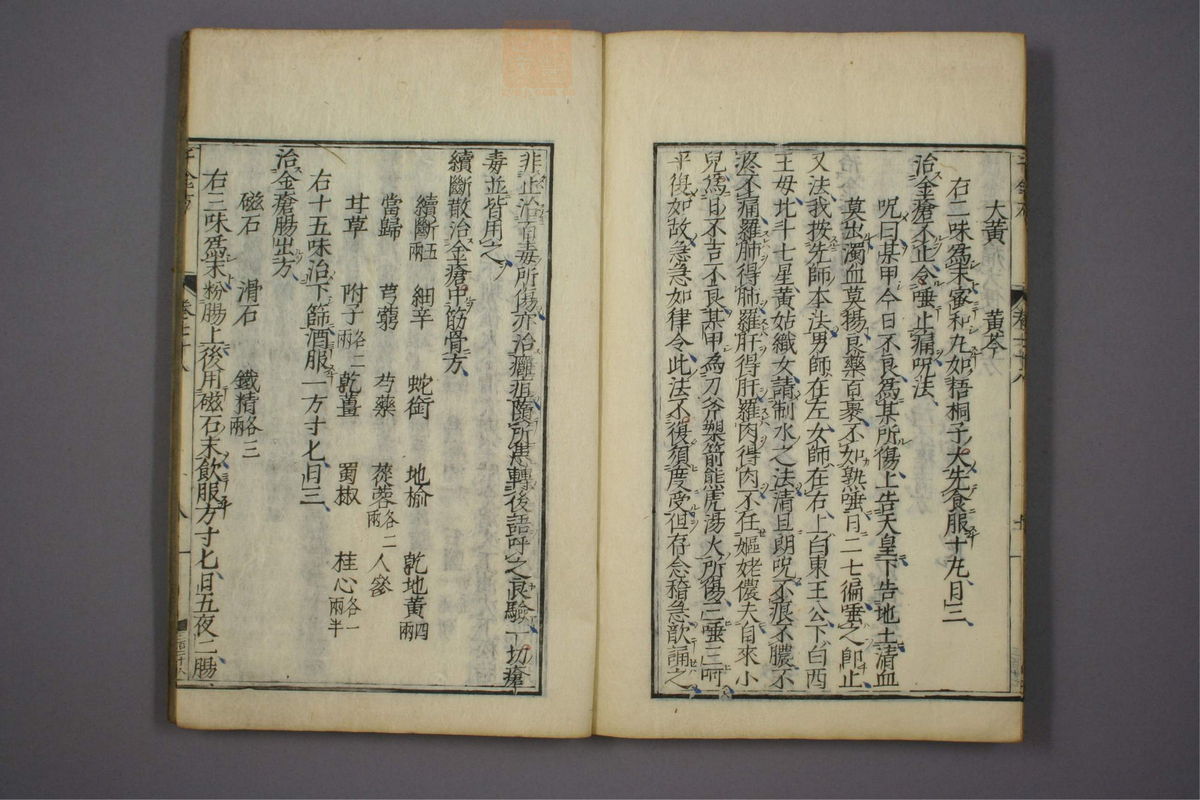 大黃　黃芩
右二味爲末蜜和丸如梧桐子大先食服十丸日三
治金瘡不止令唾止痛呪法
呪曰某甲今日不良爲某所傷上告天皇下告地土清血
莫出濁血莫揚良藥百裹不如熟唾日二七徧唾之即止
又法我按先師本法男師在左女師在右上白東王公下白西
王母北斗七星黃姑織女請制水之法清旦朗呪不痕不膿不
疼不痛羅肺得肺羅肝得肝羅肉得肉不在嫗姥儂夫自來小
兒爲日不吉不良某甲爲刀斧槊箭熊虎湯火所傷三唾三呵
平復如故急急如律令此法不復須度受但存念稽急歆誦之
非止治百毒所傷亦治癰疽隨所患轉後語呼之良驗一切瘡
毒並皆用之
續斷散治金瘡中筋骨方
續斷五兩　細辛　蛇銜　地榆　乾地黃四兩
當歸　芎藭　芍藥　蓯蓉各二兩　人參
甘草　附子各二兩　乾薑　蜀椒　桂心各一兩半
右十五味治下篩酒服一方寸匕日三
治金瘡腸出方
磁石　滑石　鐵精各三兩
右三味爲末粉腸上後用磁石末飲服方寸匕日五夜二腸